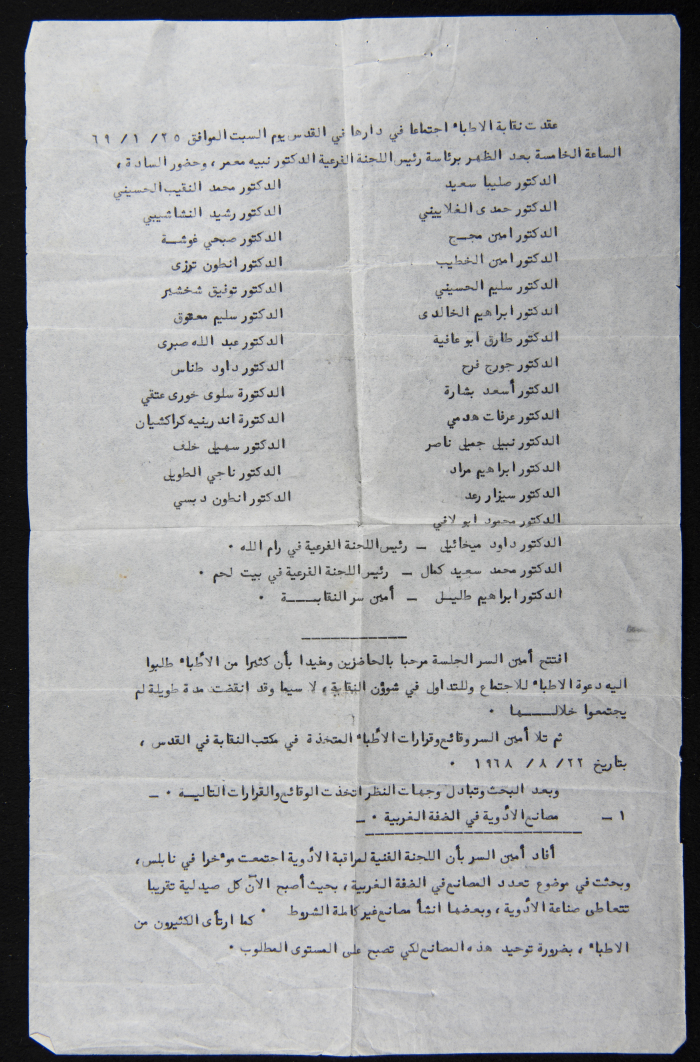 عقدت نقابة الاطباء اجتماعا في دارها في القدس يوم السبت الموافق ٢٥/ ١/ ٦٩
الساعة الخامسة بعد الظهر برئاسة رئيس اللجنة الفرعية الدكتور نبيه معمر ، وحضور السادة ،
الدكتور صليبا سعيد الدكتور محمد النقيب الحسيني
الدكتور حمدى الغلاييني الدكتور رشيد النشاشيبي
الدكتور امين مجـج الدكتور صبحي غوشـة
الدكتور امين الخطيب الدكتور انطون ترزى
الدكتور سليم الحسيني الدكتور توفيق شخشير
الدكتور ابراهيم الخالدى الدكتور سليم معتوق
الدكتور طارق ابو عافية الدكتور عبد الله صبرى
الدكتور جورج فرح الدكتور داود طناس
الدكتور أسعد بشارة الدكتورة سلوى خورى عتقي
الدكتور عرفات هدمي الدكتورة اندرينيه كراكشيان
الدكتور نبيل جميل ناصر الدكتور سهيل خلف
الدكتور ابراهيم مراد الدكتور ناجي الطويل
الدكتور سيزار رعد الدكتور انطون دبسي
الدكتور محمود ابو لافي
الدكتور داود ميخائيل ــ رئيس اللجنة الفرعية في رام الله ٠
الدكتور محمد سعيد كمال ــ رئيس اللجنة الفرعية في بيت لحم ٠
الدكتور ابراهيم طليـل ــ أمين سر النقابــــة ٠
افتتح أمين السر الجلسة مرحبا بالحاضرين ومفيدا بأن كثيرا من الأطباء طلبوا
اليه دعوة الاطباء للاجتماع وللتداول في شوؤن النقابة ، لا سيما وقد انقضت مدة طويلة لم
يجتمعوا خلالـــــها ٠
ثم تلا أمين السر وقائع وقرارات الأطباء المتخذة في مكتب النقابة في القدس ،
بتاريخ ٢٢/ ٨/ ١٩٦٨ ٠
وبعد البحث وتبادل وجهات النظر اتخذت الوقائع والقرارات التاليـة ٠ ــ
١ ــ مصانع الأدوية في الضفة الغربية ٠ ــ
أفاد أمين السر بأن اللجنة الفنية لمراقبة الأدوية اجتمعت موءخرا في نابلس ،
وبحثت في موضوع تعدد المصانع في الضفة الغربية ، بحيث أصبح الآن كل صيدلية تقريبا
تتعاطى صناعة الأدوية ، وبعضها انشأ مصانع غير كاملة الشروط ٠ كما ارتأى الكثيرون من
الاطباء ، بضرورة توحيد هذه المصانع لكي تصبح على المستوى المطلوب ٠